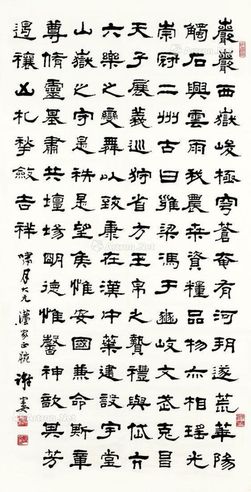 巖巖西嶽峻極穹蒼奄有河朔遂荒華陽
觸石興雲雨我農桑資糧品物亦相瑤光
崇冠二州古曰雍梁馮于豳岐文武克昌
天子展義巡狩省方玉帛之贄禮與岱亢
六樂之變舞以致康在漢中葉建設宇堂
山嶽之守是秩是望侯惟安國兼命斯章
尊脩靈基肅共壇場明德惟馨神歆其芳
遏禳凶札揫斂吉祥
月大兄 家正 謝